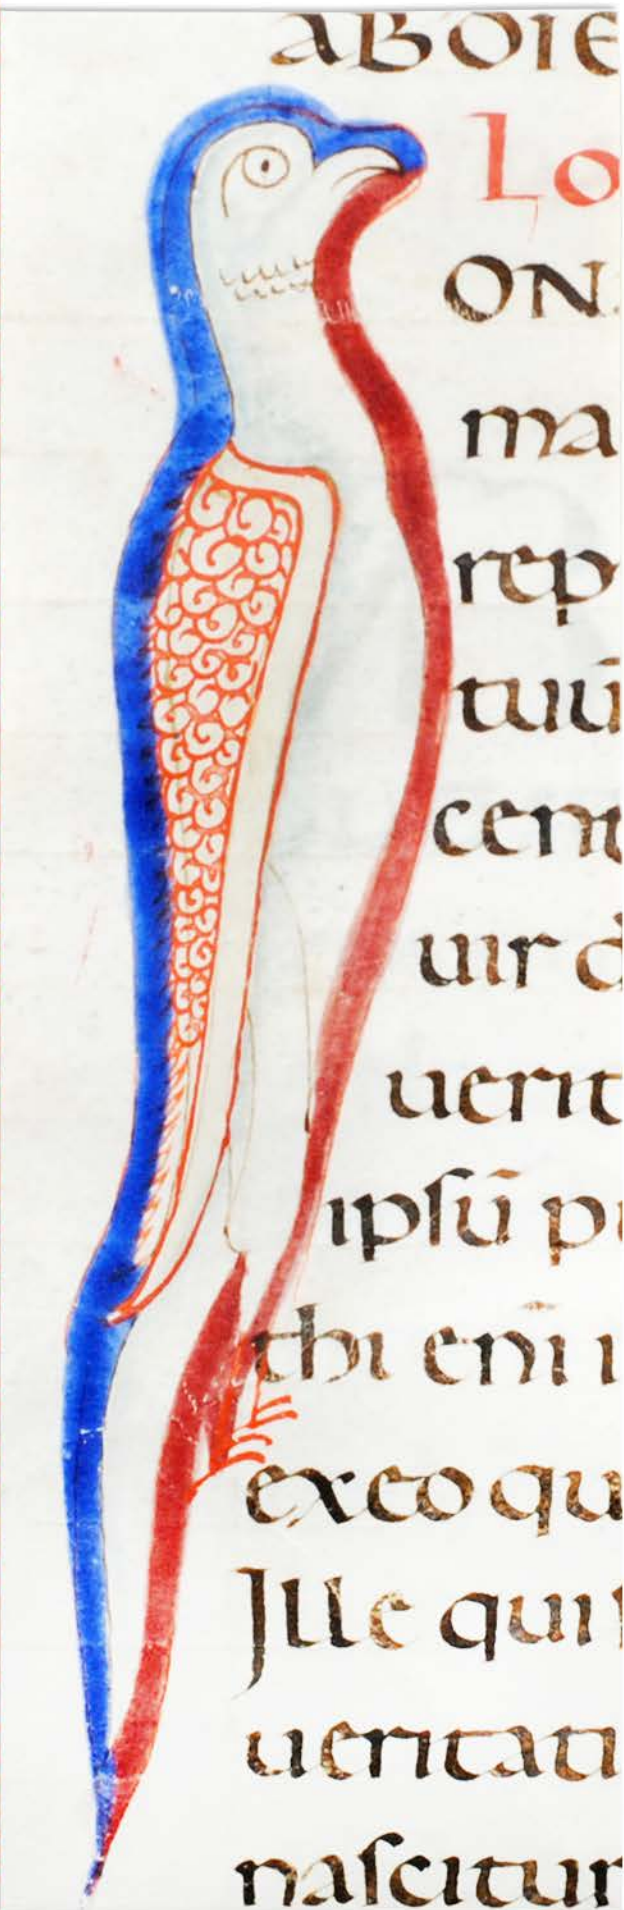 ABOIE
LO
ON.
ma
rep
tuū
cent
uir d
uerit
ipſū p
thi enī i
exeo qu
Ille qui
ueritati
naſcitur